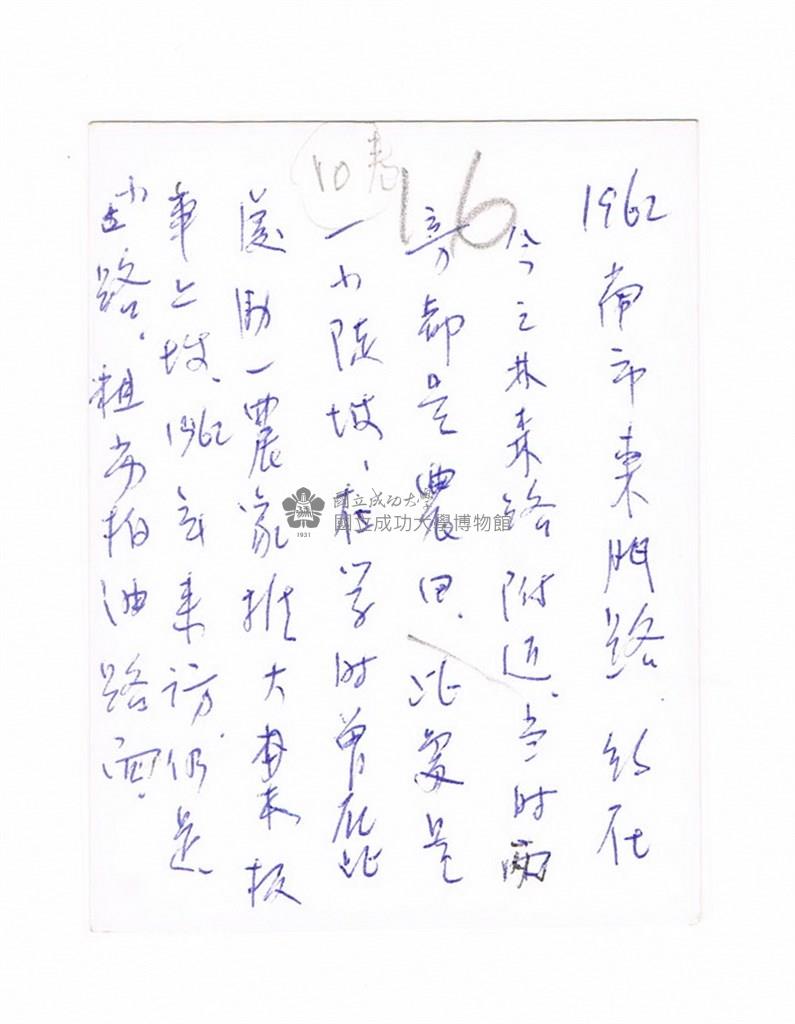 16
1962 南市東門路. 約在
今之林森路附近. 当时兩
旁都是農田. 此處是
一小陡坡、在学时曾在此
助一農家推大 板
車上坡、1962年来訪仍是
小 路. 粗劣柏油路面.
10
國立成功大學
國立成功大學博物館
1931